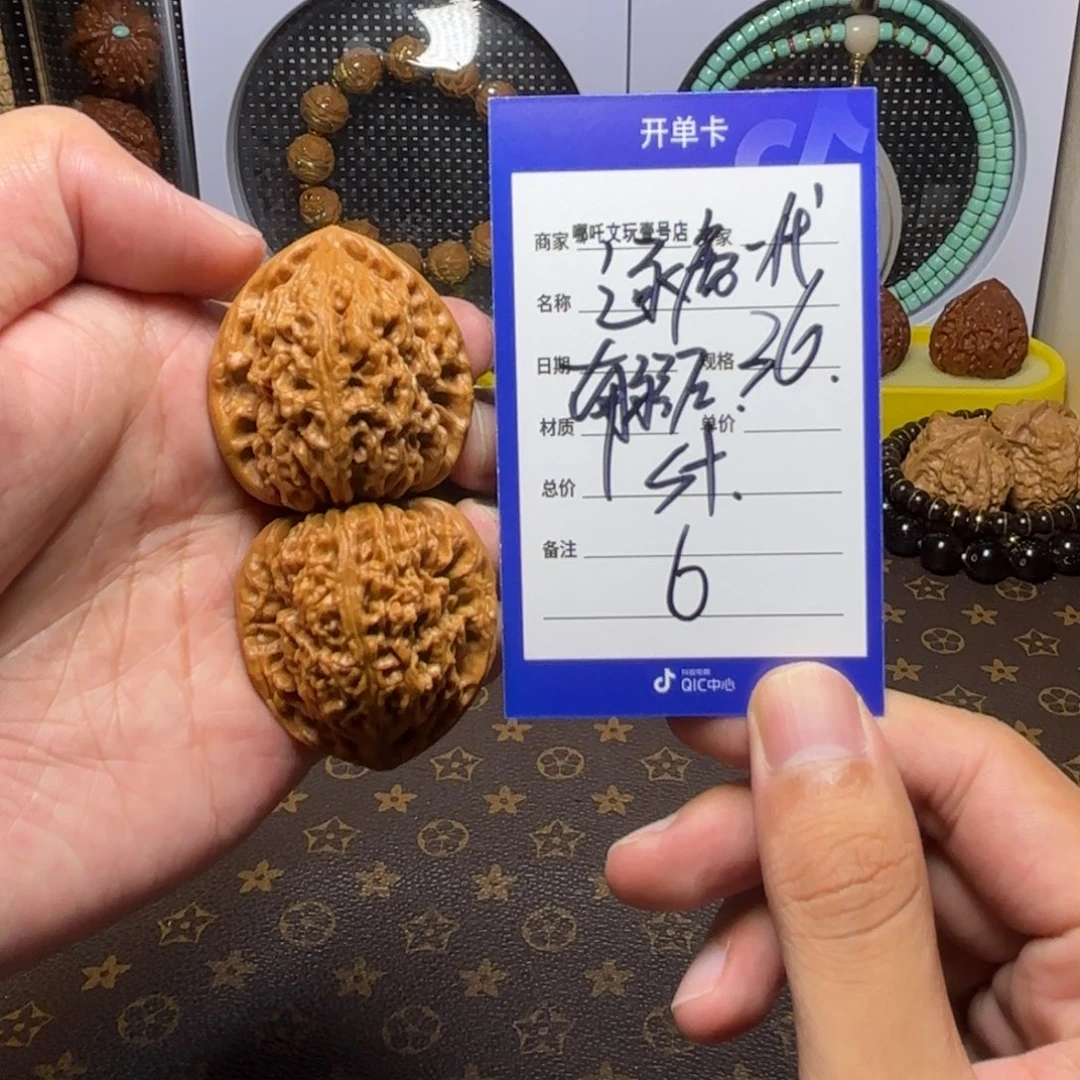 开单卡
商家 哪吒文玩壹号店
名称 一代
日期 规格 36.
材质 单价
总价
备注 6
抖音电商
QIC中心